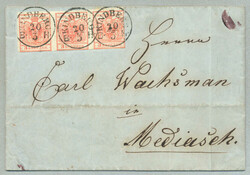 20
20
20
Herrn
Carl Wachsman
in
Mediasch.